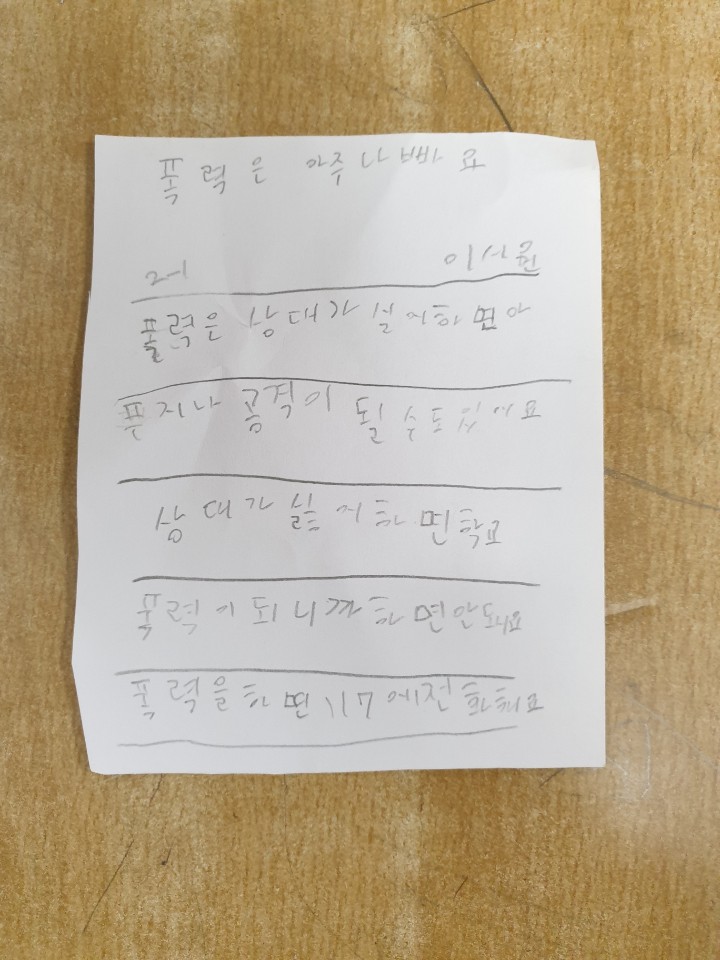 폭력은 아주나빠요
2-1 이서
폭력은 상대가 실어하면아
지나 공격이 될수도있어요
상대가 싫어하면학교
폭력이되니까하면안돼요
폭력을하면 117에전화해요